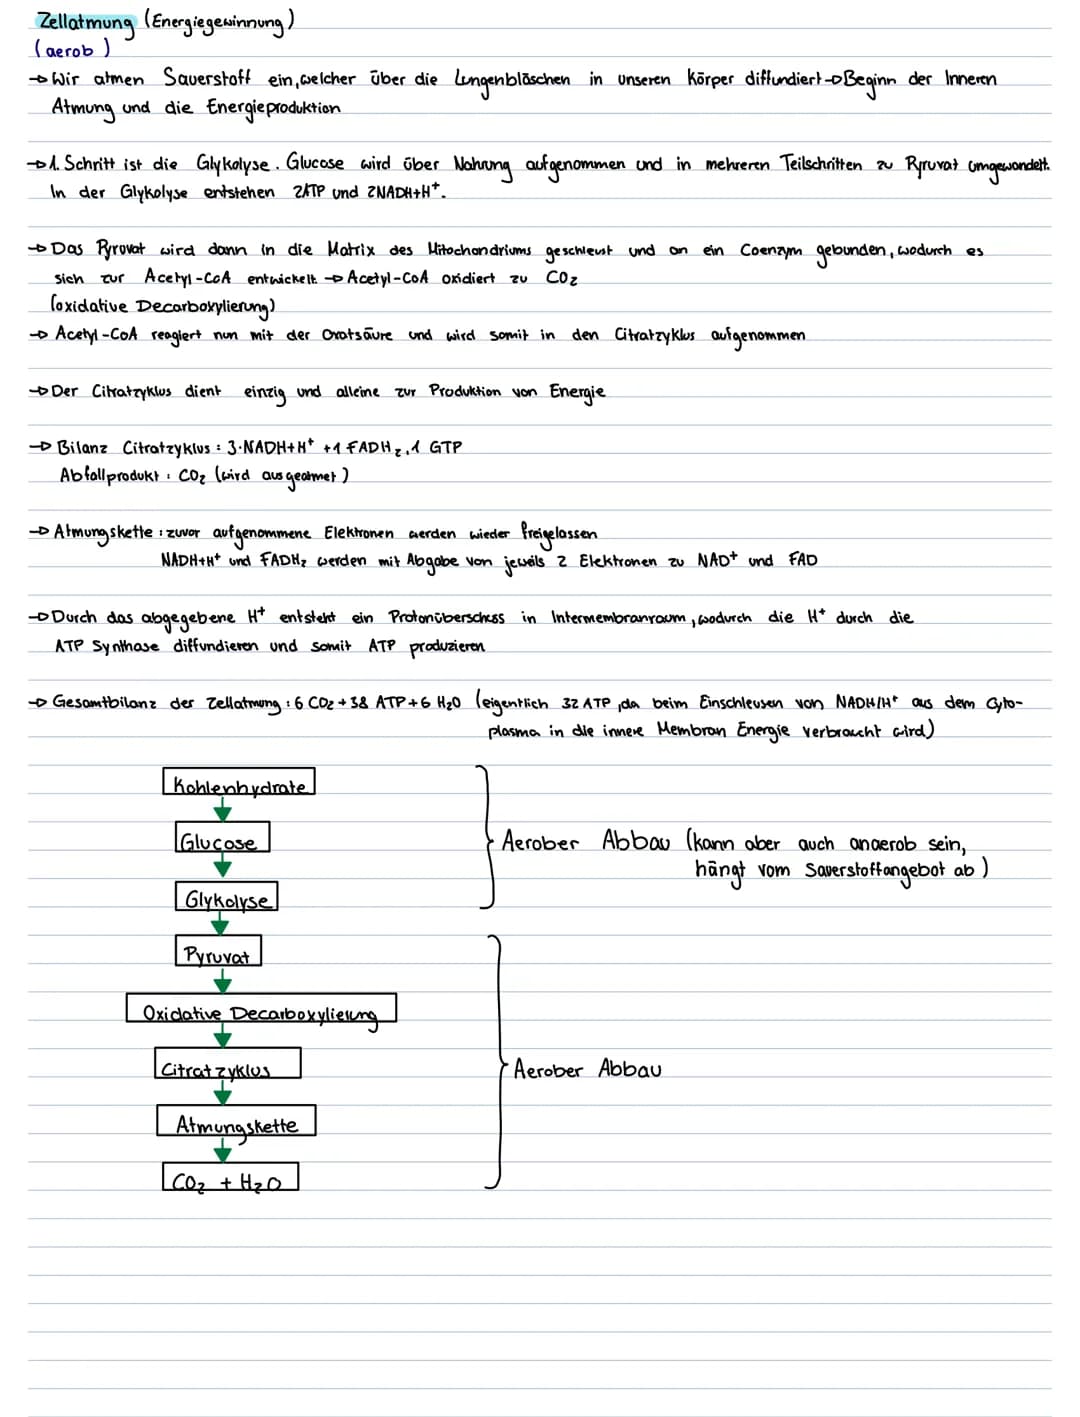 Zellatmung (Energiegewinnung)
(aerob)
→ Wir atmen Sauerstoff ein, welcher über die Lungenbläschen in unseren Körper diffundiert → Beginn der Inneren
Atmung und die Energieproduktion
→ 1. Schritt ist die Glykolyse. Glucose wird über Nahrung aufgenommen und in mehreren Teilschritten zu Pyruvat umgewandelt.
In der Glykolyse entstehen 2ATP und 2NADH+H⁺.
→ Das Pyruvat wird dann in die Matrix des Mitochondriums geschleust und an ein Coenzym gebunden, wodurch es
sich zur Acetyl-CoA entwickelt → Acetyl-CoA oxidiert zu CO₂
(oxidative Decarboxylierung)
→ Acetyl-CoA reagiert nun mit der Oxatsäure und wird somit in den Citratzyklus aufgenommen
→ Der Citratzyklus dient einzig und alleine zur Produktion von Energie
→ Bilanz Citratzyklus: 3·NADH+H⁺ +1 FADH₂, 1 GTP
Abfallprodukt: CO₂ (wird ausgeatmet)
→ Atmungskette: zuvor aufgenommene Elektronen werden wieder freigelassen
NADH+H⁺ und FADH₂ werden mit Abgabe von jeweils 2 Elektronen zu NAD⁺ und FAD
→ Durch das abgegebene H⁺ entsteht ein Protonüberschuss in Intermembranraum, wodurch die H⁺ durch die
ATP Synthase diffundieren und somit ATP produzieren
→ Gesamtbilanz der Zellatmung: 6 CO₂ + 38 ATP + 6 H₂O (eigentlich 32 ATP, da beim Einschleusen von NADH/H⁺ aus dem Cyto-
plasma in die innere Membran Energie verbraucht wird)
Kohlenhydrate
Glucose
Aerober Abbau (kann aber auch anaerob sein,
hängt vom Sauerstoffangebot ab)
Glykolyse
Pyruvat
Oxidative Decarboxylierung
Citratzyklus
Aerober Abbau
Atmungskette
CO₂ + H₂O